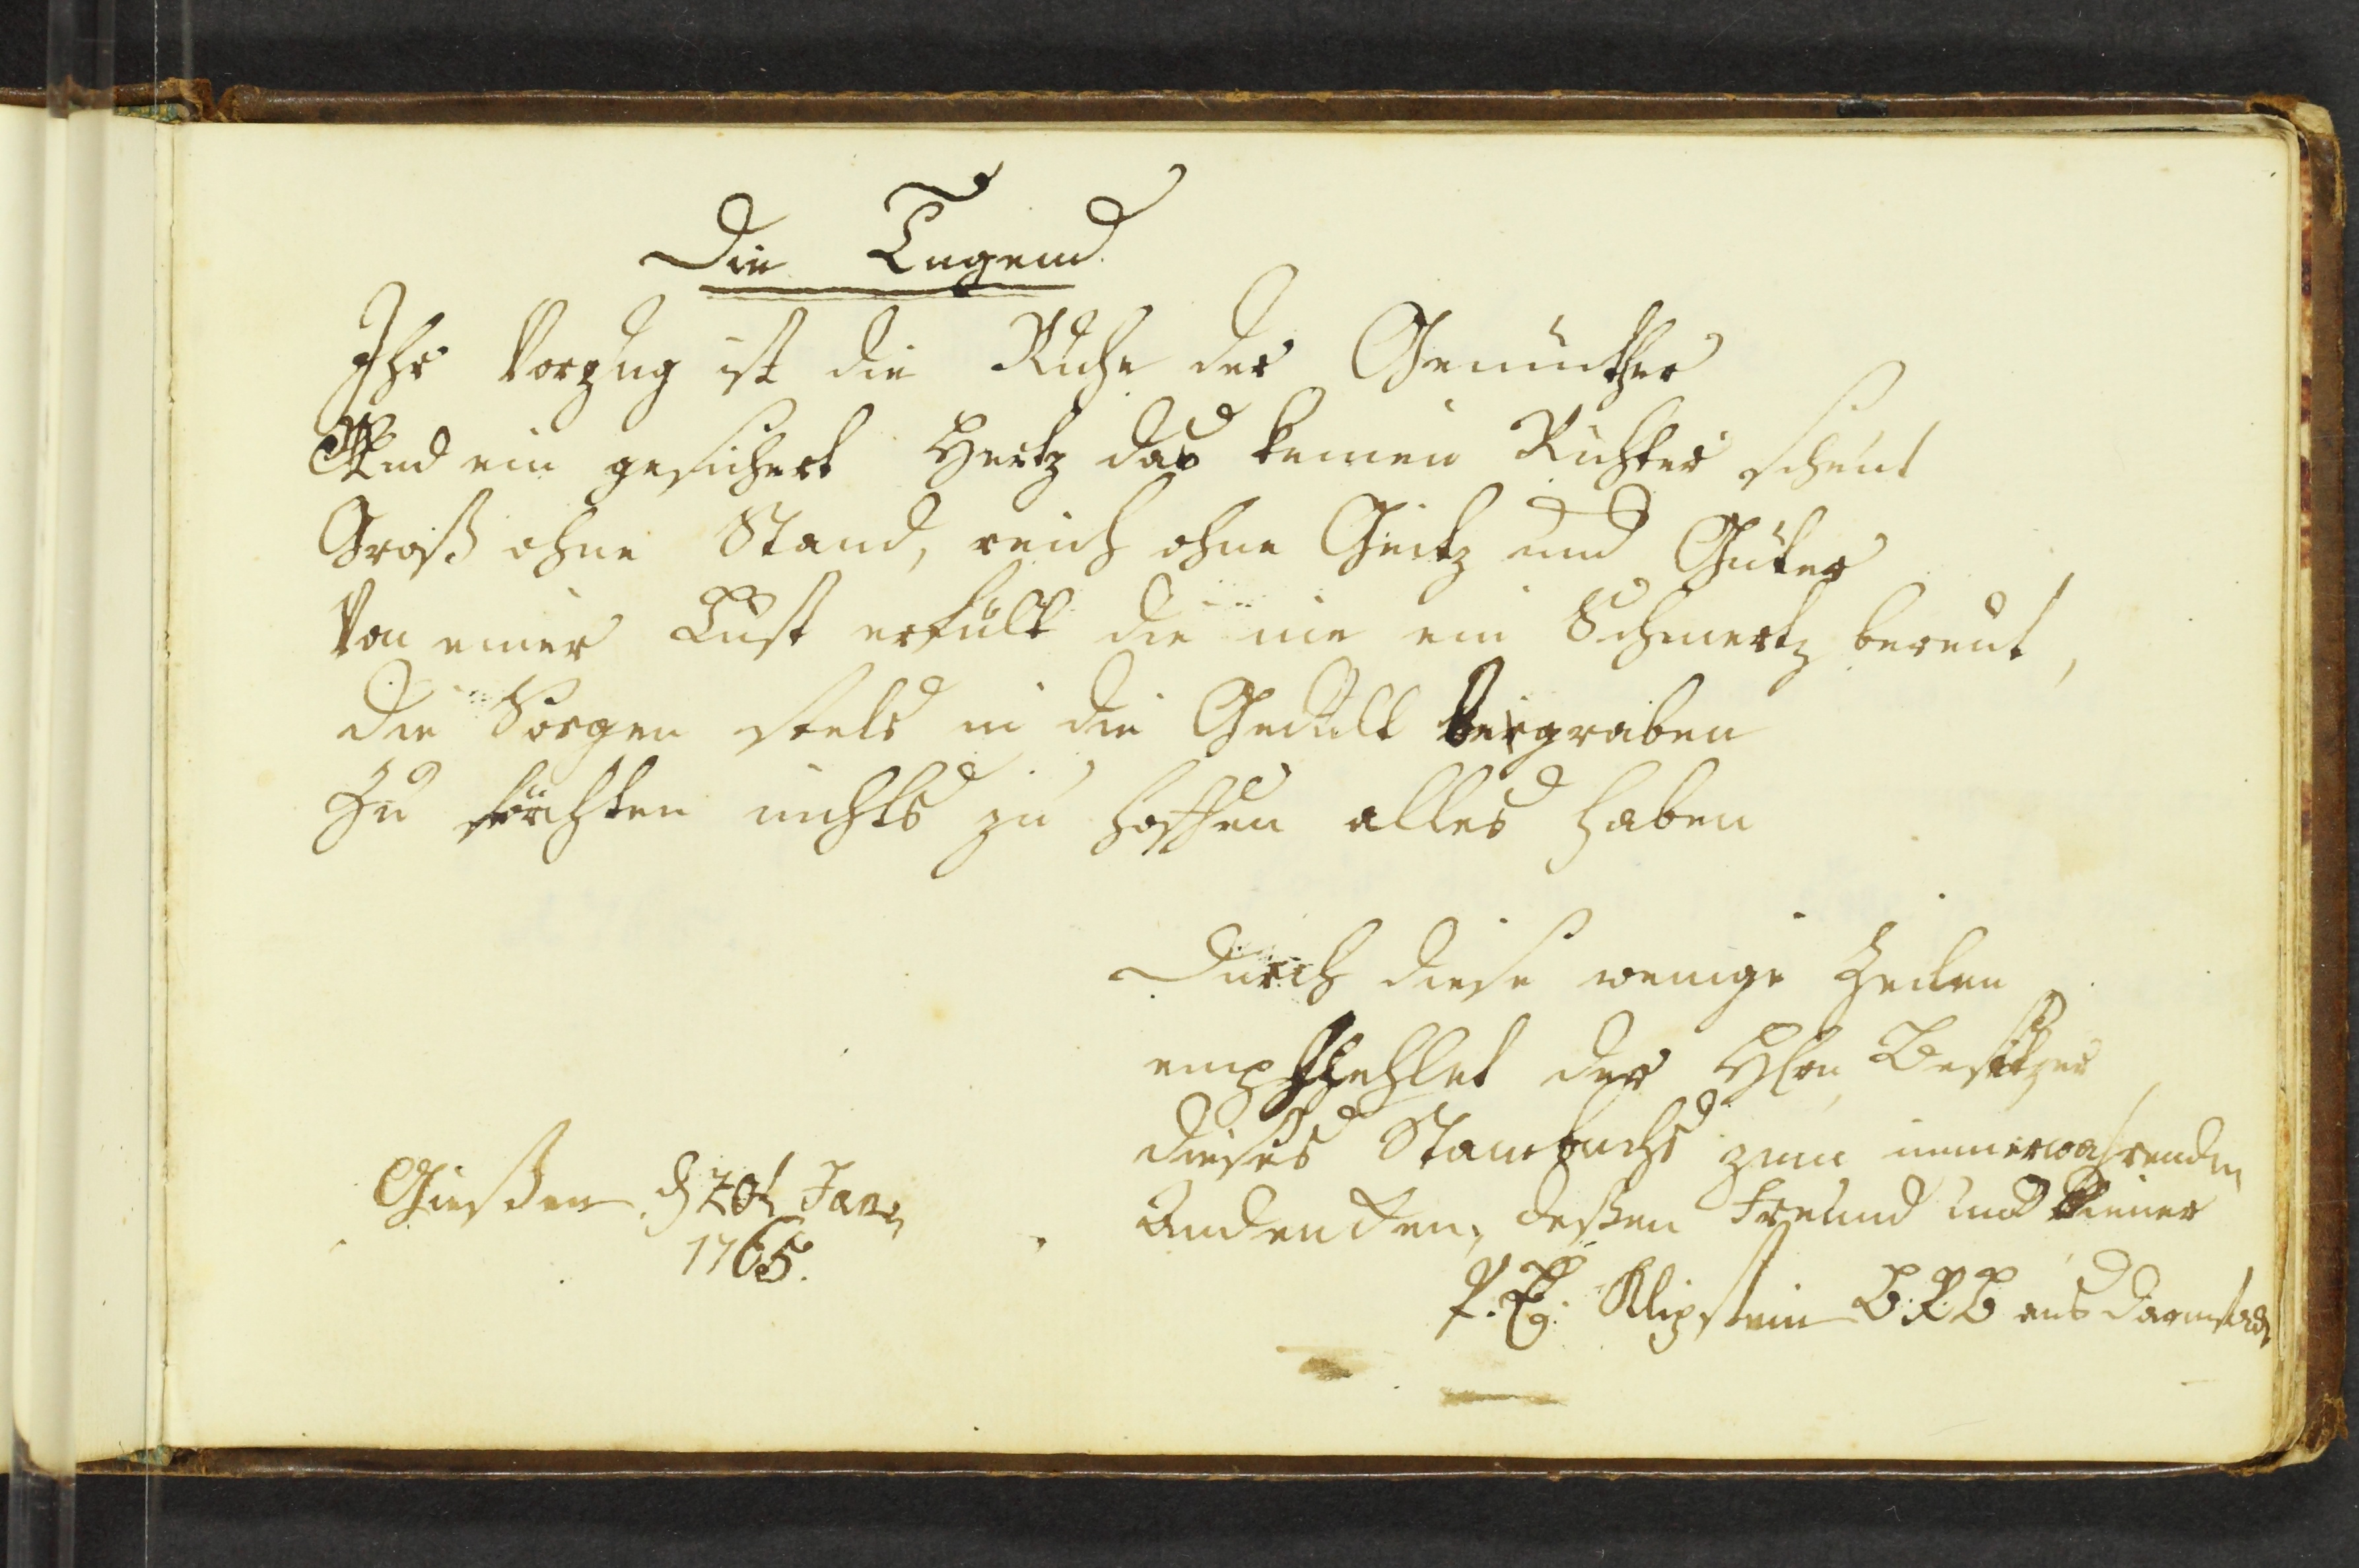 Die Tugend
Ihr Vorzug ist die Ruhe der Gemüther
Und ein gesichert Hertz das keinen Richter scheut
Groß ohne Stand, reich ohne Geitz und Güter
Von einer Lust erfült die nie ein Schmertz bereut,
Die Sorgen stets in die Gedult begraben
Zu förchten nichts zu hoffen alles haben
Durch diese wenige Zeilen
empfiehlet der Hℓrn Besitzer
dieses Stambuchs zum immerwahrenden
Andencken, deßen Freund und Diener
P. E. Klipstein B.R.B aus Darmstadt
Gießen d 20t Jan.
1765.